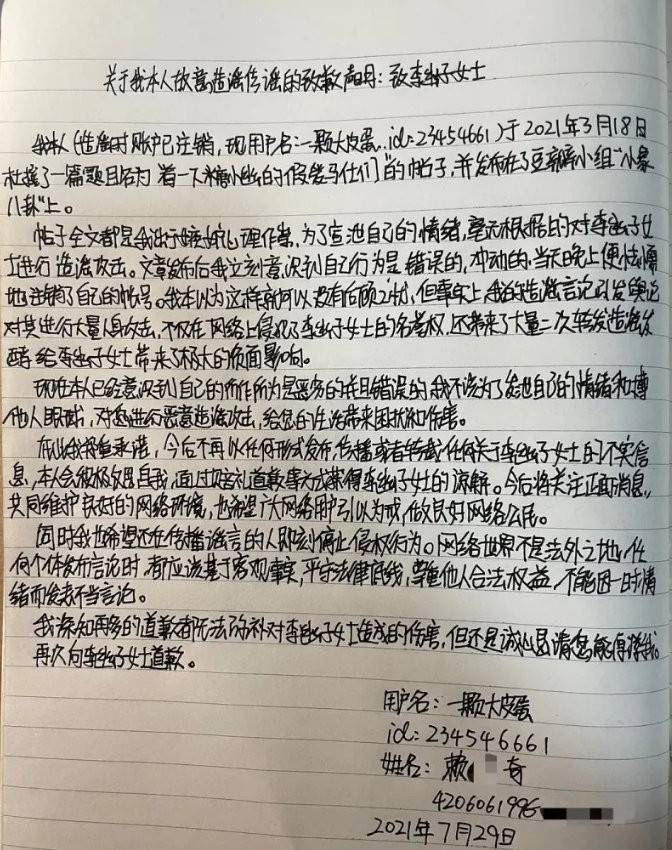 关于我本人故意造谣传谣的致歉声明：致李幽子女士
我本人（造谣时账户已注销，现用户名：一颗大皮蛋，id：23454661）于2021年3月18日
杜撰了一篇题目名为 着一下 的假爱马仕们"的帖子，并发布在了豆瓣小组"小象
八卦"上。
帖子全文都是我出于嫉妒心理作祟，为了宣泄自己的情绪，毫无根据的对李幽子女
士进行造谣攻击。文章发布后我立刻意识到自己行为是错误的，冲动的，当天晚上便
地注销了自己的帐号。我本以为这样就可以没有后顾之忧，但事实上我的造谣言论引发舆论
对其进行大量人身攻击，不仅在网络上侵犯了李幽子女士的名誉权，还带来了大量二次转发造谣发
酵给李幽子女士带来了极大的负面影响。
现在本人已经意识到自己的所作所为是恶劣的并且错误的，我不该为了发泄自己的情绪和博
他人眼球，对您进行恶意造谣攻击，给您的生活带来困扰和伤害。
在此我郑重承诺，今后不再以任何形式发布，传播或者转载任何关于李幽子女士的不实信
息，本人会积极反思自我，通过赔礼道歉等方式获得李幽子女士的谅解。今后将关注正面消息，
共同维护良好的网络环境，也希望广大网络用户引以为戒，做良好网络公民。
同时我也希望还在传播谣言的人即刻停止侵权行为。网络世界不是法外之地，任
何个体发布言论时，都应该基于客观事实，严守法律底线，尊重他人合法权益，不能因一时情
绪而发表不当言论。
我深知再多的道歉都无法弥补对李幽子女士造成的伤害，但还是诚心恳请您能原谅我。
再次向李幽子女士道歉。
用户名：一颗大皮蛋
id：234546661
姓名：赖 奇
4206061996
2021年7月29日